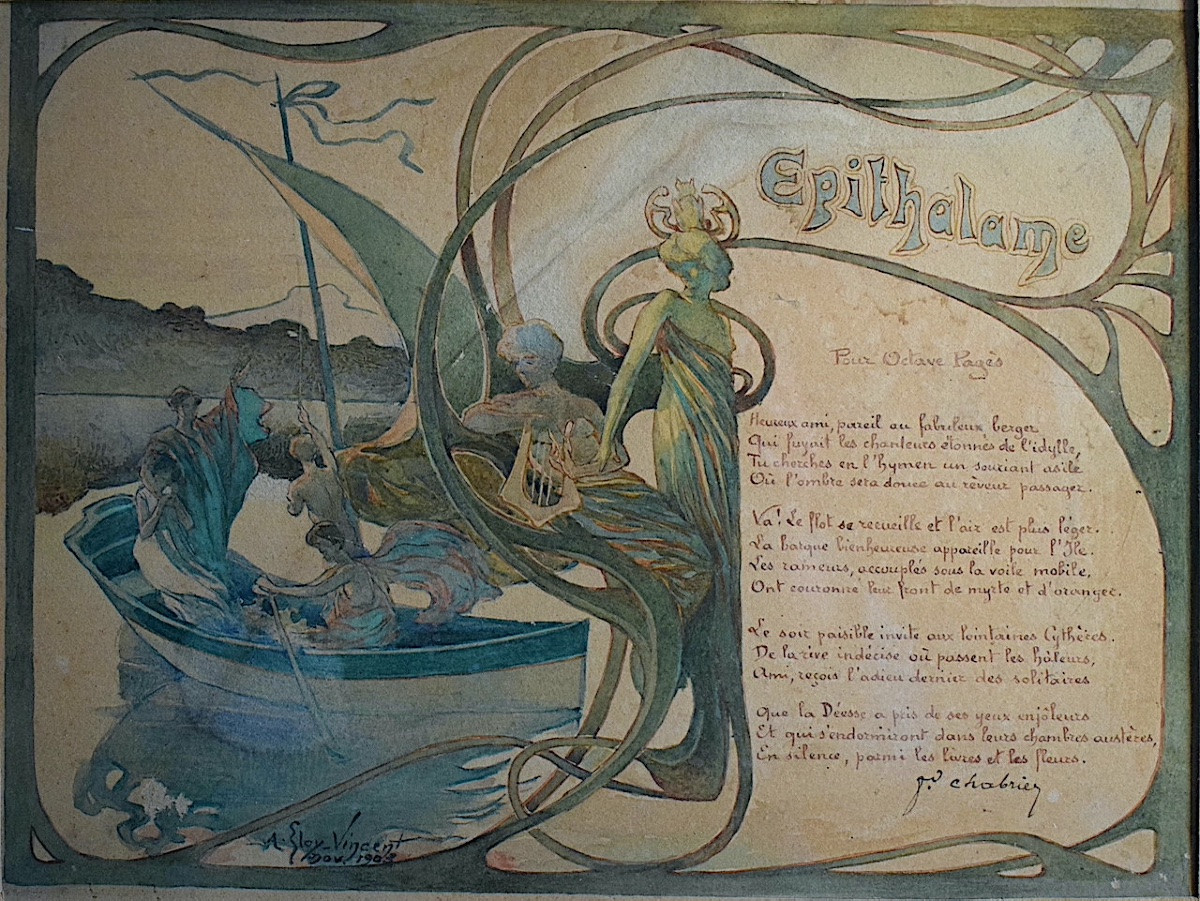 Epithalame
Pour Octave Pagès
Heureux ami, pareil au fabuleux berger
Qui fuyait les chanteurs étonnés de l'idylle,
Tu cherches en l'hymen un souriant asile
Où l'ombre sera douce au rêveur passager.
Va! Le flot se recueille et l'air est plus léger.
La barque bienheureuse appareille pour l'Ile.
Les rameurs, accouplés sous la voile mobile,
Ont couronné leur front de myrte et d'oranger.
Le soir paisible invite aux lointaines Cythères.
De la rive indécise où passent les hâleurs,
Ami, reçois l'adieu dernier des solitaires
Que la Déesse a pris de ses yeux enjôleurs
Et qui s'endormiront dans leurs chambres austères,
En silence, parmi les livres et les fleurs.
chabrier
A. Eloy-Vincent
nov.